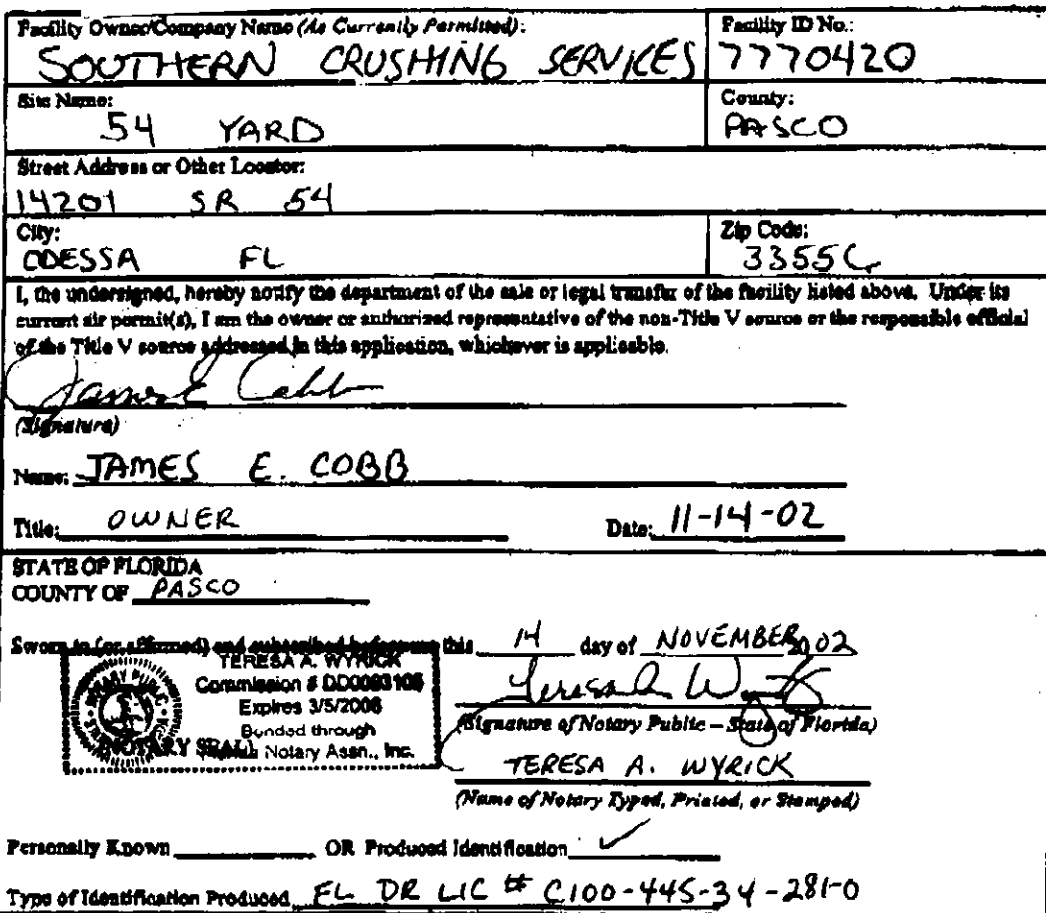 Facility Owner/Company Name (As Currently Permitted):
SOUTHERN CRUSHING SERVICES
Facility ID No.:
7770420
Site Name:
54 YARD
County:
PASCO
Street Address or Other Locator:
14201 SR 54
City:
ODESSA FL
Zip Code:
33556
I, the undersigned, hereby notify the department of the sale or legal transfer of the facility listed above. Under its
current air permit(s), I am the owner or authorized representative of the non-Title V source or the responsible official
of the Title V source addressed in this application, whichever is applicable.
(Signature)
Name: JAMES E. COBB
Title: OWNER
Date: 11-14-02
STATE OF FLORIDA
COUNTY OF PASCO
Sworn to (or affirmed) and subscribed before me this 14 day of NOVEMBER 2002
TERESA A. WYRICK
Commission # DD0093105
Expires 3/5/2006
Bonded through
Notary Assn., Inc.
(NOTARY SEAL)
NOTARY PUBLIC
(Signature of Notary Public – State of Florida)
TERESA A. WYRICK
(Name of Notary Typed, Printed, or Stamped)
Personally Known OR Produced Identification ✓
Type of Identification Produced FL DR LIC # C100-445-34-281-0